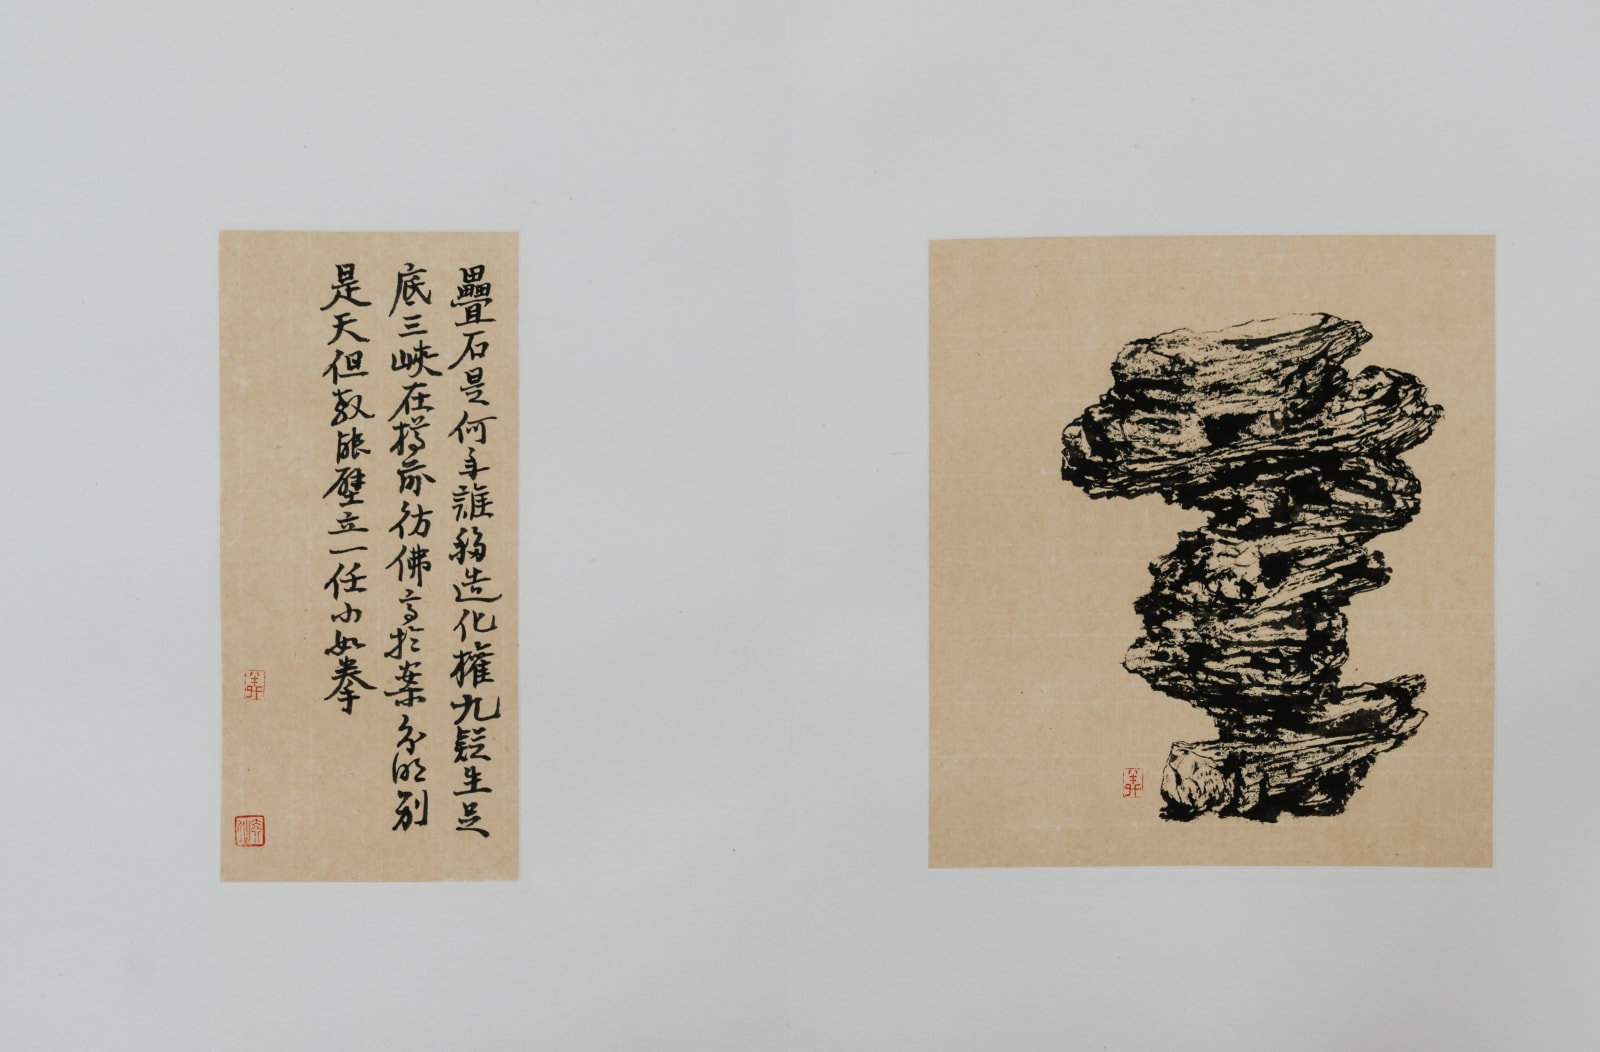 疊石是何年誰移造化權九疑生足
底三峽在樽前彷彿高於案分明別
是天但教能壁立一任小如拳